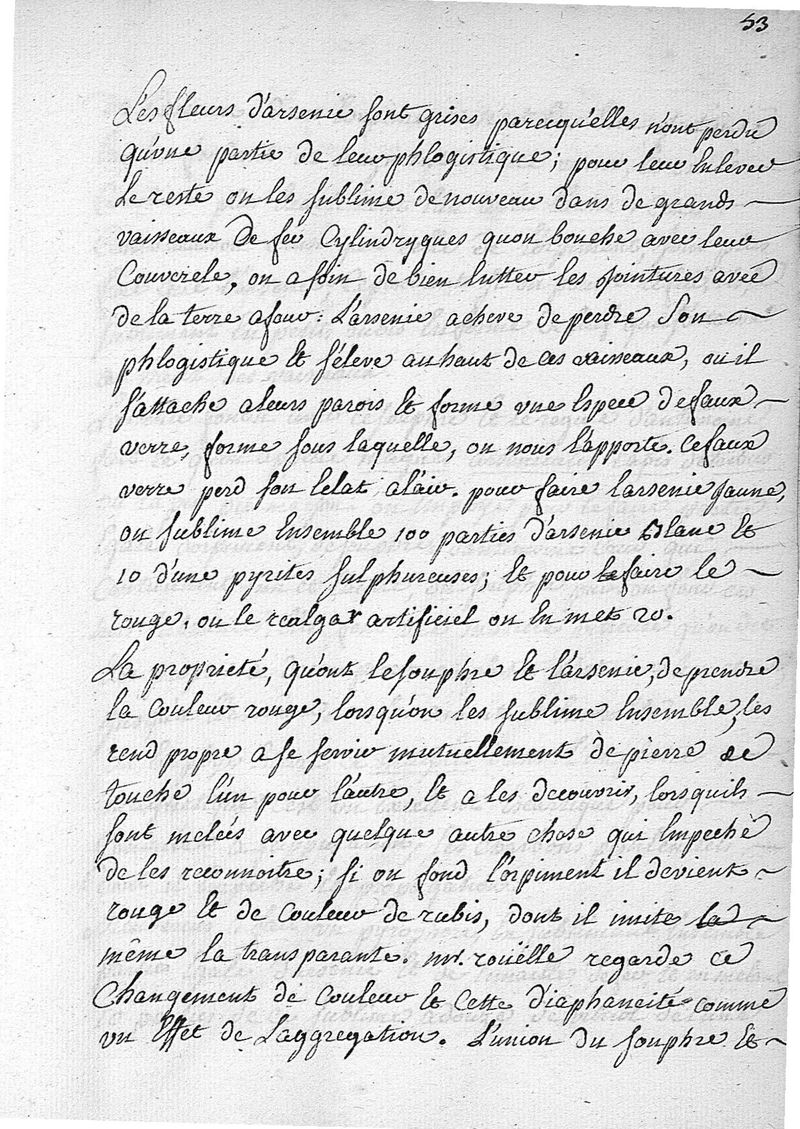 53
Les fleurs d'arsenic sont grises parcequ'elles n'ont perdu
qu'une partie de leur phlogistique; pour leur Enlever
Le reste on les sublime de nouveau dans de grands
vaisseaux De fer Cylindryques quon bouche avec leur
Couvercle, on a soin de bien lutter les jointures avec
de la terre a four: L'arsenic acheve de perdre Son
phlogistique Et s'éleve au haut de ces vaisseaux, ou il
s'attache a leurs parois Et forme une Espece de faux
verre, forme sous laquelle, on nous l'apporte. Ce faux
verre perd son Eclat a l'air. pour faire l'arsenic jaune,
on sublime Ensemble 100 parties d'arsenic Blanc Et
10 d'une pyrites sulphureuses; Et pour faire le
rouge, ou le realgar artificiel on En met 20.
La propriété, qu'ont le souphre Et l'arsenic, de prendre
la Couleur rouge, lorsqu'on les sublime Ensemble, les
rend propre a se servir mutuellement de pierre de
touche l'un pour l'autre, Et a les decouvrir, lorsquils
sont melées avec quelque autre chose qui Empeche
de les reconnoitre; si on fond l'orpiment il devient
rouge Et de Couleur de rubis, dont il imite la
même la transparante. mr. rouëlle regarde ce
Changement de Couleur Et Cette Diaphaneité comme
un Effet de L'aggregation. L'union du souphre Et